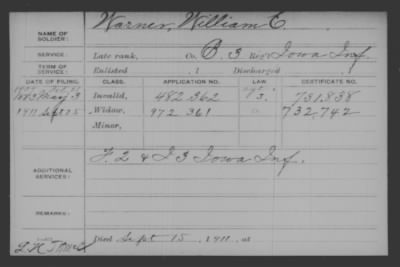 NAME OF SOLDIER: Warner, William C.
SERVICE: Late rank, Co. B. 3 Reg't Iowa Inf.
TERM OF SERVICE: Enlisted , 1 Discharged , 1
DATE OF FILING. CLASS. APPLICATION NO. LAW. CERTIFICATE NO.
1883 May 3 Invalid, 482 362 731,838
1911 Sept 25 Widow, 972 361 732,742
Minor,
ADDITIONAL SERVICES: F. 2 & I 3 Iowa Inf.
REMARKS:
Died Sept 15, 1911, at